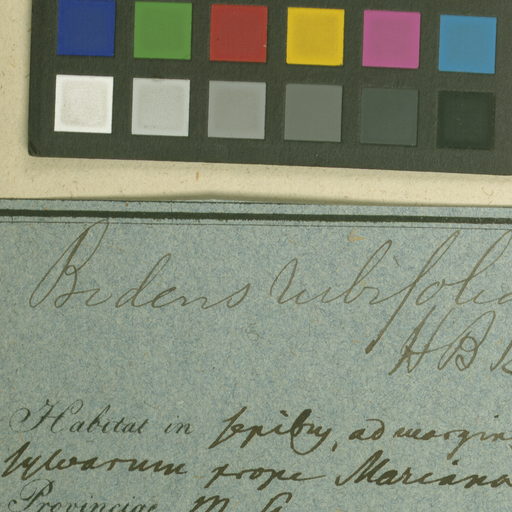 Bidens rubifolia
H B
Habitat in sepibus, ad margin
sylvarum prope Mariana
Provinciae